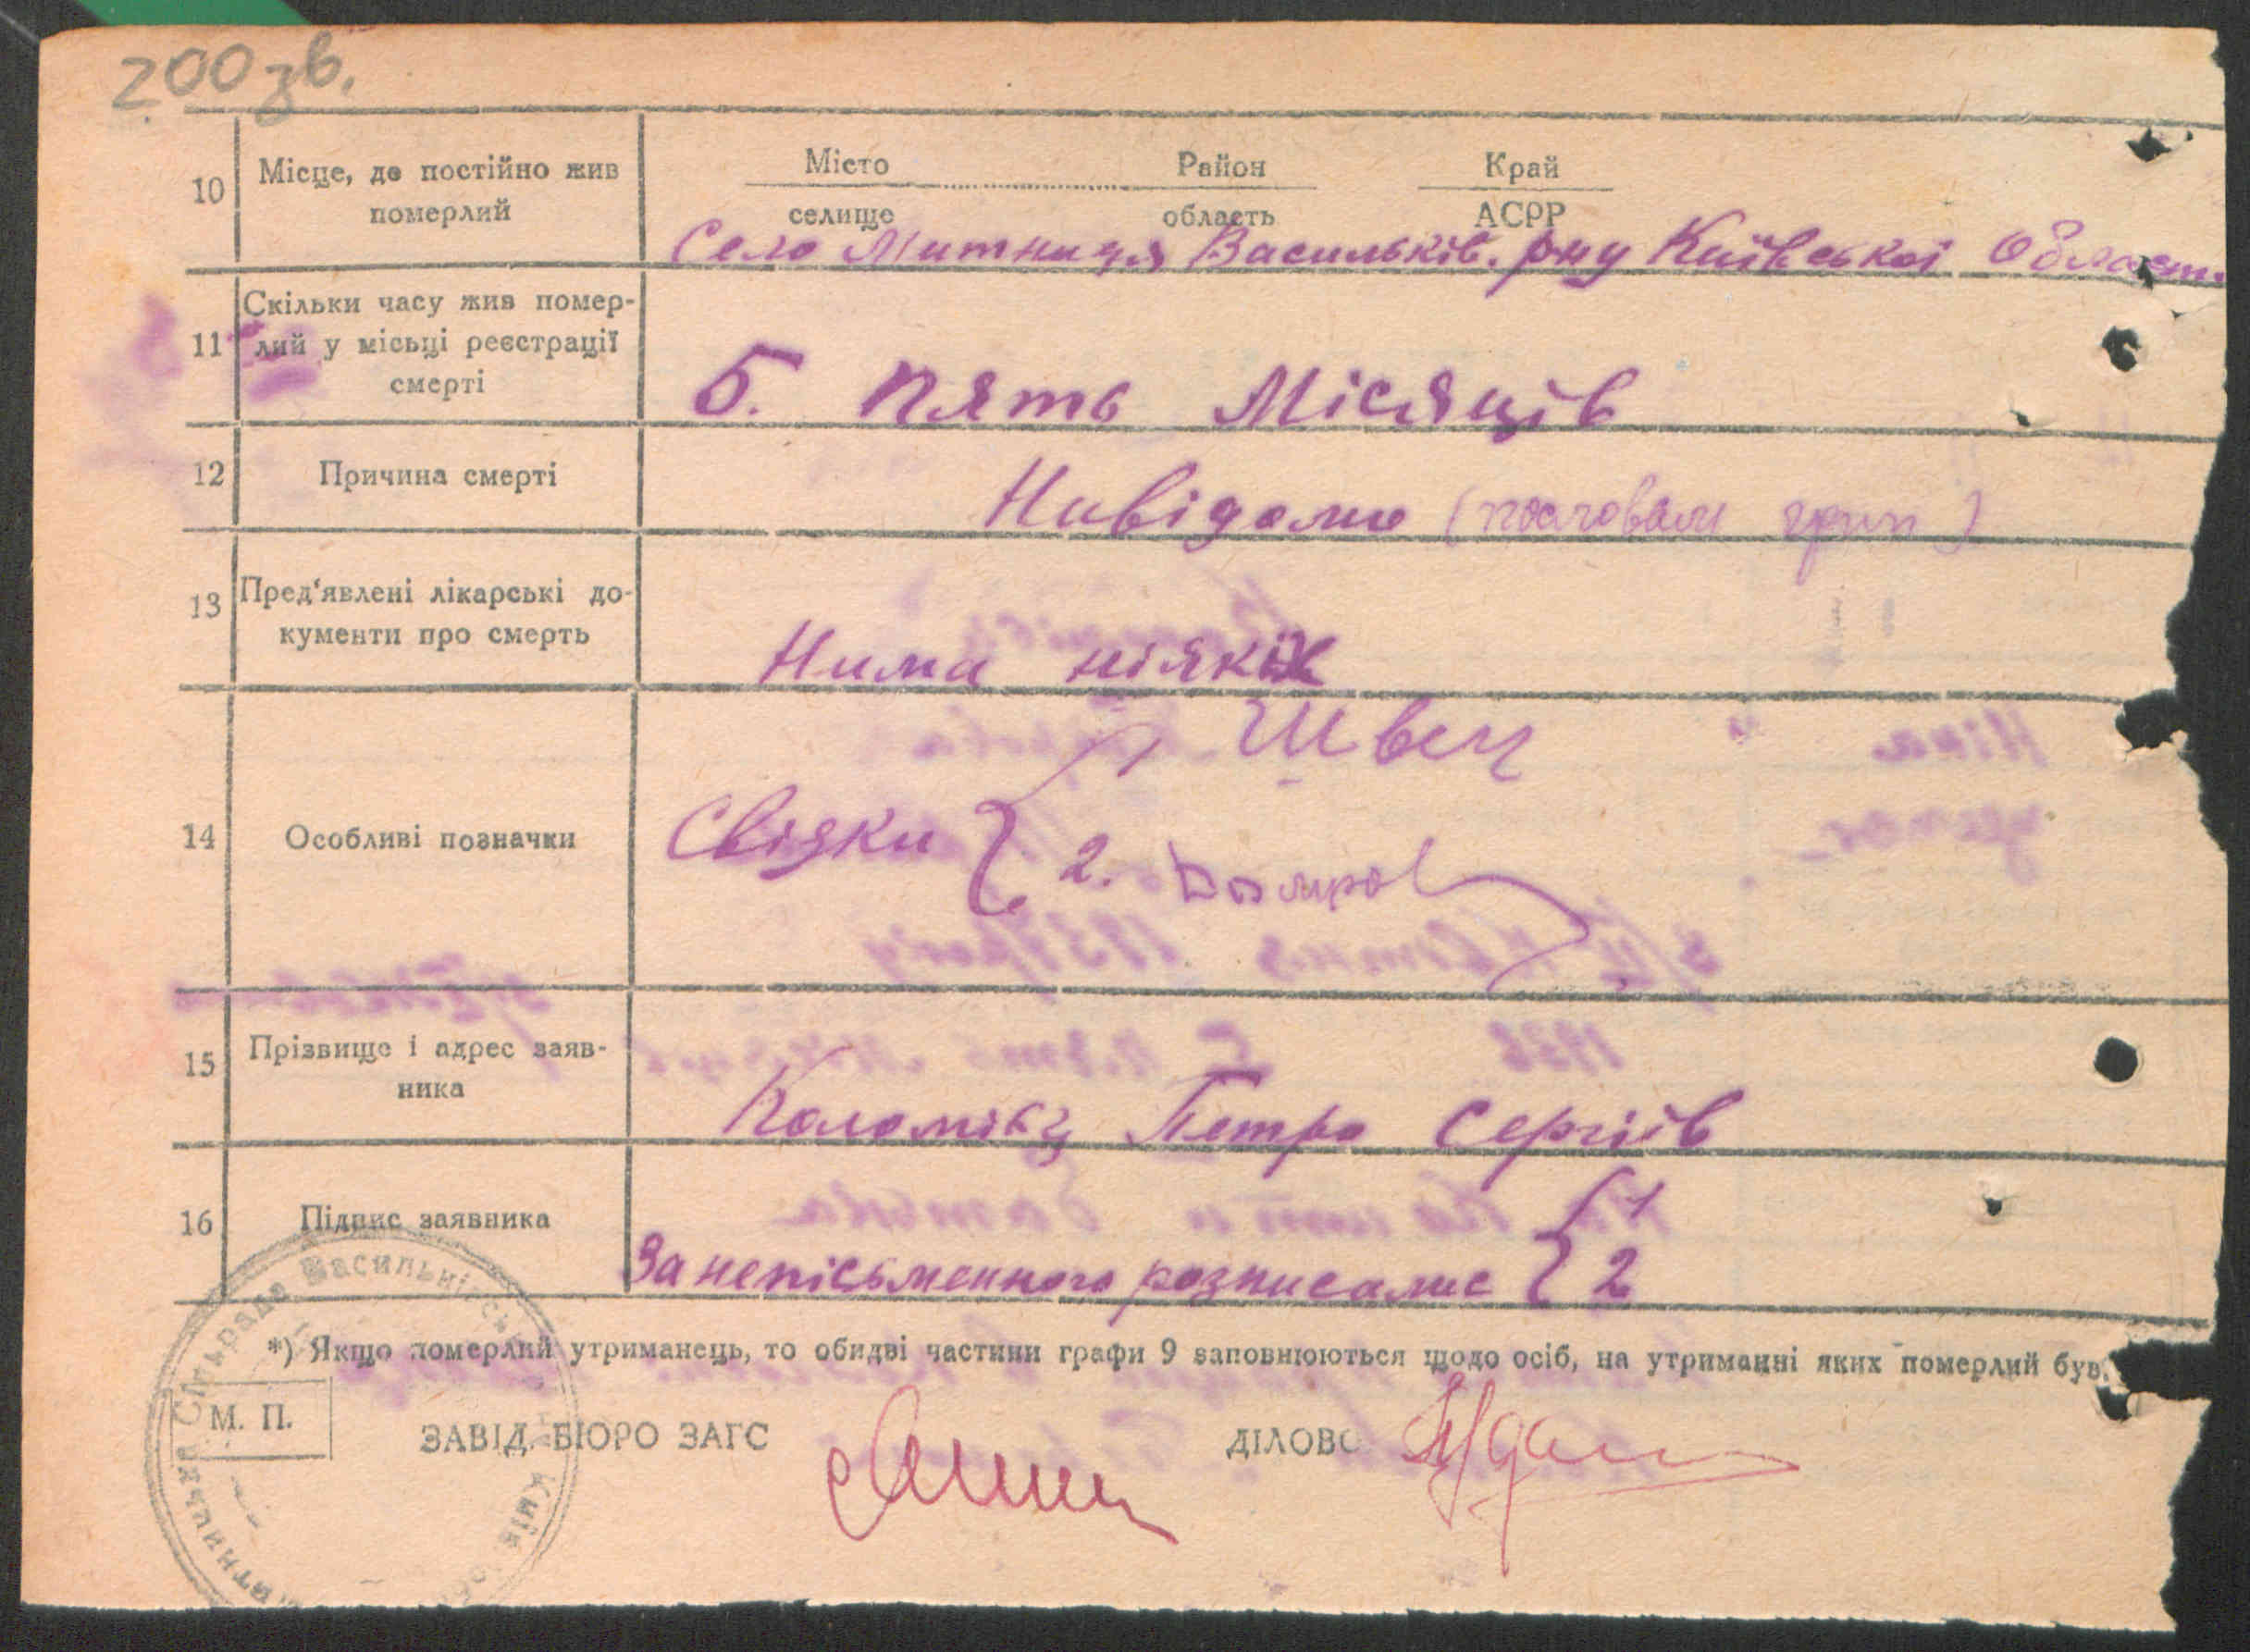 200 зв.
10 Місце, де постійно жив померлий
Місто Район Край
селище область АСРР
Село Митниця Васильків. рну Київської Област.
11 Скільки часу жив помер-
лий у місьці реєстрації
смерті
5. Пять Місяців
12 Причина смерті
Нивідомо ( грип)
13 Пред'явлені лікарські до-
кументи про смерть
Нима ніяких
14 Особливі позначки
Швец
Свідки 2.
15 Прізвище і адрес заяв-
ника
Коломієц Петро Сергіїв
16 Підпис заявника
1
За непісьменного розписалис 2
*) Якщо померлий утриманець, то обидві частини графи 9 заповнюються щодо осіб, на утриманні яких померлий був.
М. П.
ЗАВІД. БЮРО ЗАГС ДІЛОВО